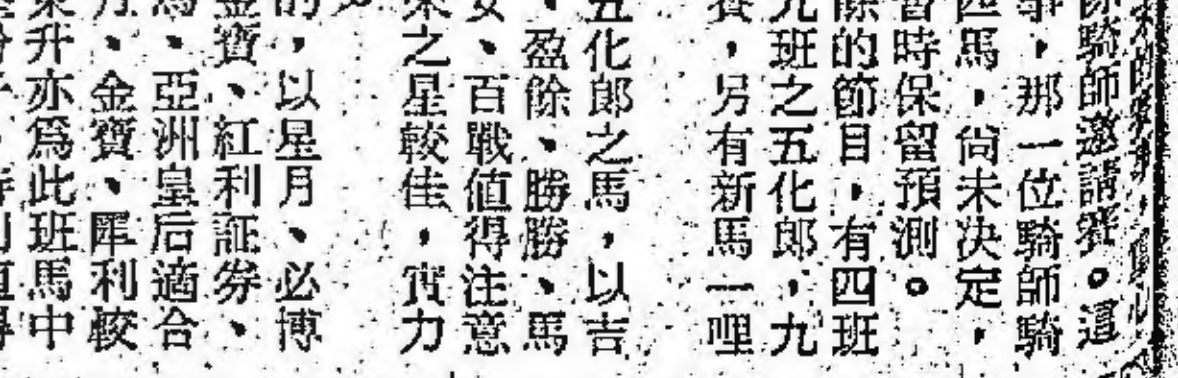 騎師邀請賽。這
事，那一位騎師騎
匹馬，尙未決定，
暫時保留預測。
餘的節目，有四班
九班之五化郎，九
賽，另有新馬一哩
五化郎之馬，以吉
、盈餘、勝勝、馬
、百戰値得注意
之星較佳，實力
的，以星月、必博
金寶、紅利証券、
馬、亞洲皇后適合
、金寶、犀利較
升亦爲此班馬中